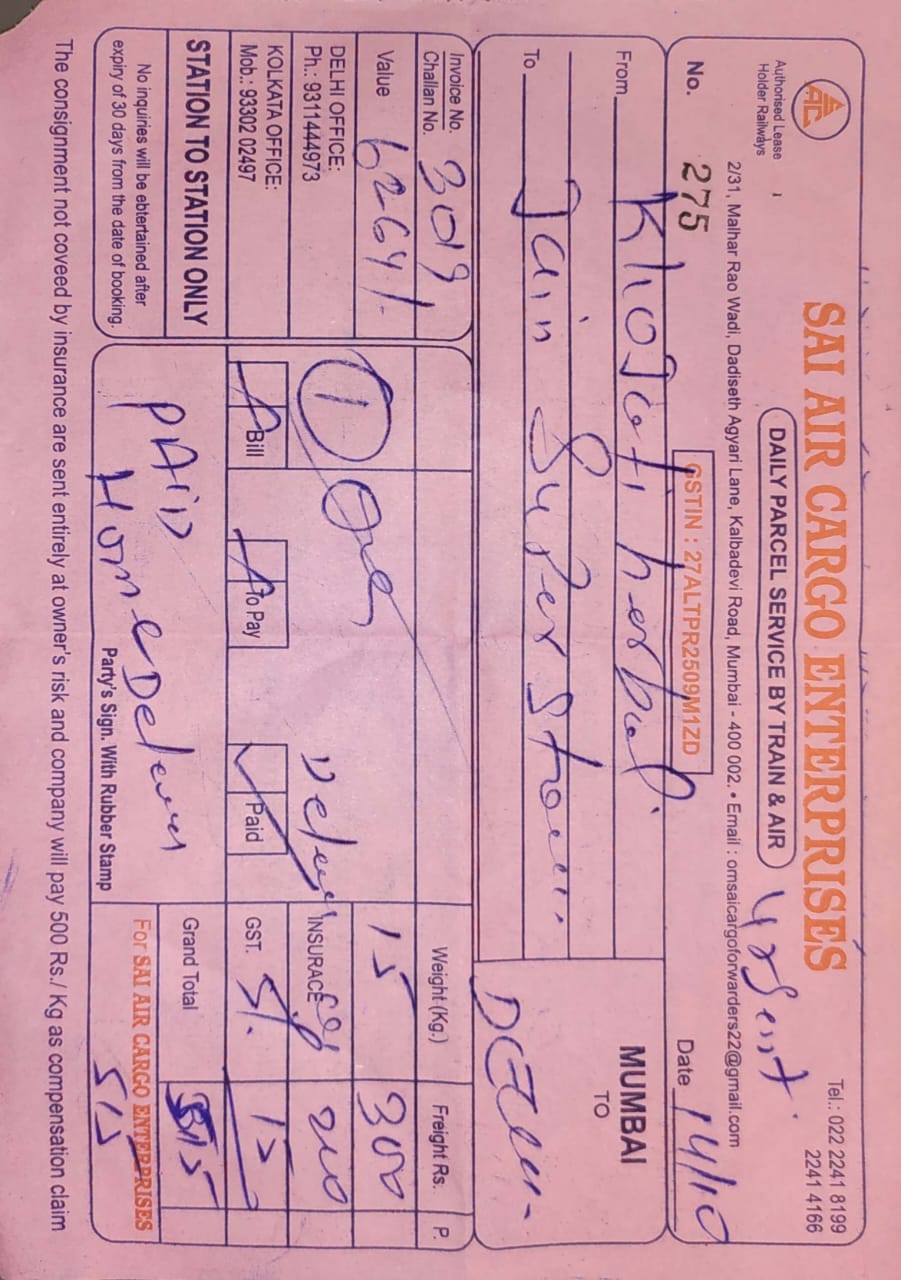 SAI AIR CARGO ENTERPRISES
Tel.: 022 2241 8199
2241 4166
DAILY PARCEL SERVICE BY TRAIN & AIR
Authorised Lease
Holder Railways
2/31, Malhar Rao Wadi, Dadiseth Agyari Lane, Kalbadevi Road, Mumbai - 400 002. • Email : omsaicargoforwarders22@gmail.com
No. 275
GSTIN : 27ALTPR2509M1ZD
Date 14/10
From Khojati herbal.
MUMBAI
TO
To Jain Super Store
Invoice No.
Challan No. 3019
Weight (Kg.) Freight Rs. P.
Value 6264/-
1 One
15 300
DELHI OFFICE:
Ph.: 9311444973
INSURACE 200
KOLKATA OFFICE:
Mob.: 93302 02497
Bill To Pay Paid
GST. 5%. 15
STATION TO STATION ONLY
PAID
Home
Grand Total 515
No inquiries will be ebtertained after
expiry of 30 days from the date of booking.
Party's Sign. With Rubber Stamp
For SAI AIR CARGO ENTERPRISES
515
The consignment not coveed by insurance are sent entirely at owner's risk and company will pay 500 Rs./ Kg as compensation claim